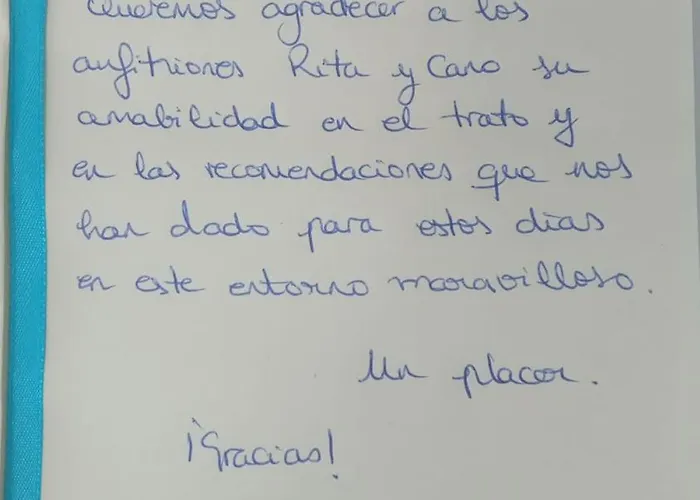 Queremos agradecer a los
anfitriones Rita y Caro su
amabilidad en el trato y
en las recomendaciones que nos
han dado para estos días
en este entorno maravilloso.
Un placer.
¡Gracias!